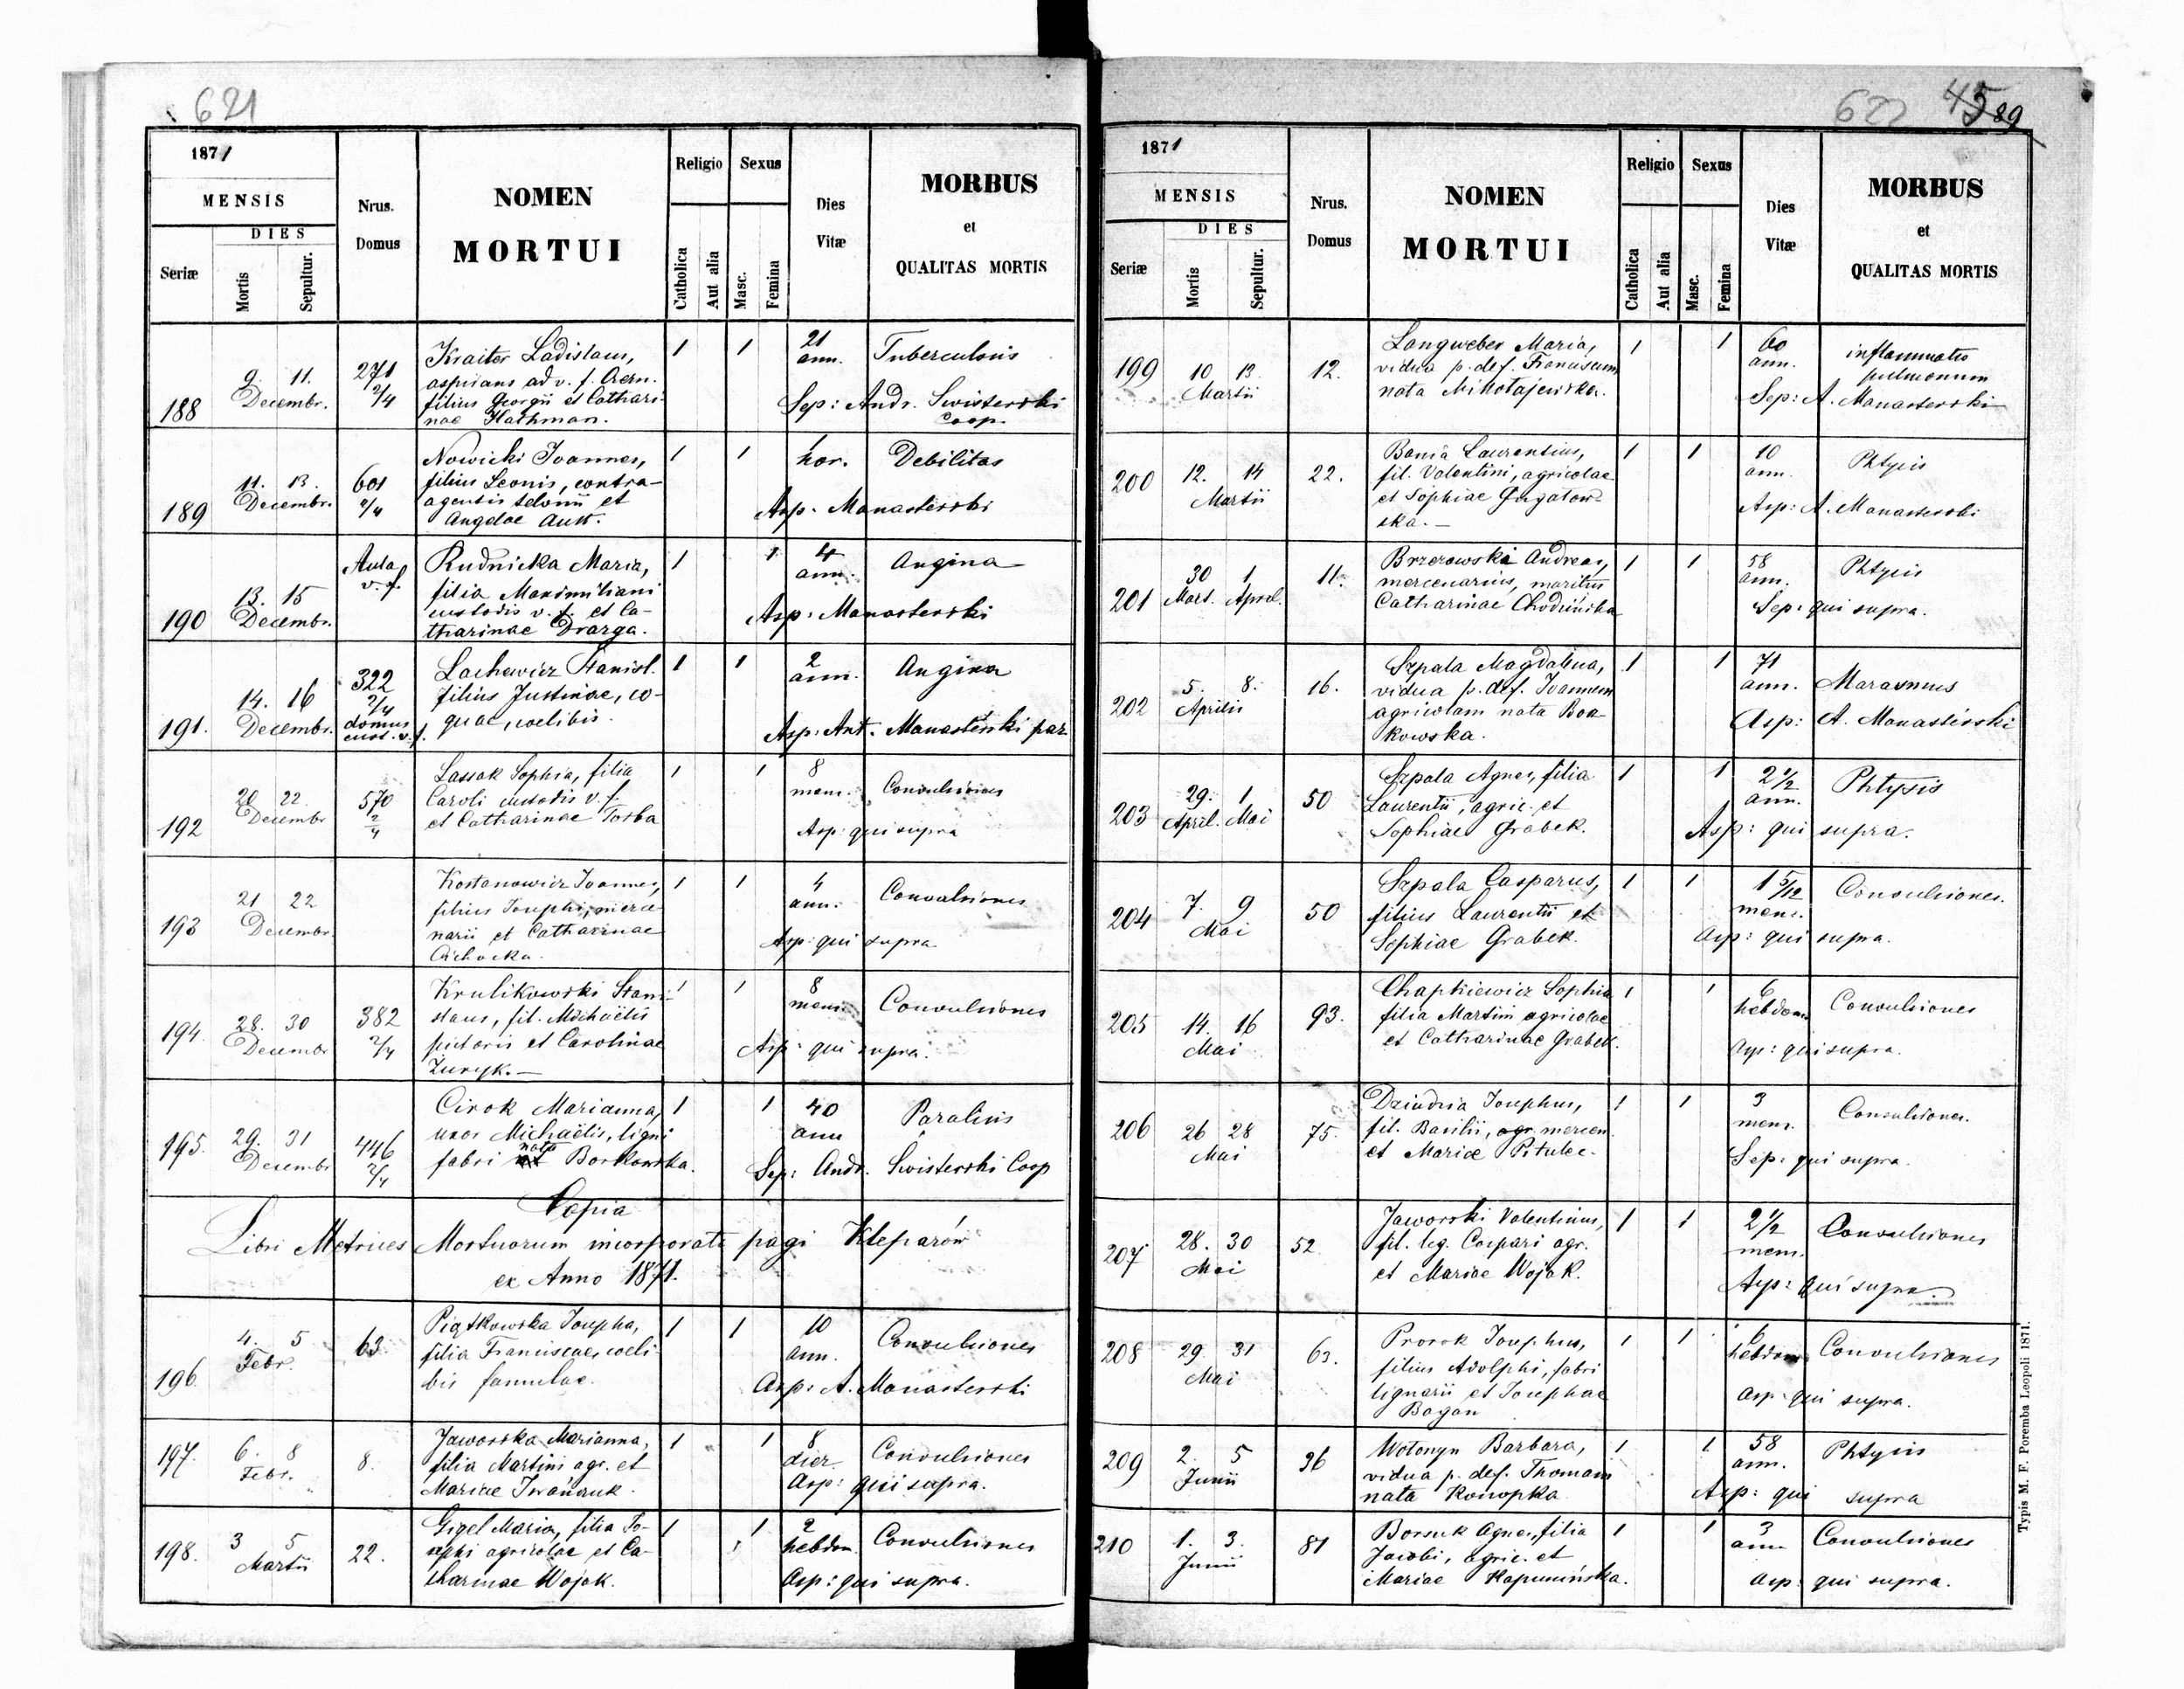 621
1871
MENSIS
DIES
Seriæ
Mortis
Sepultur.
Nrus.
Domus
NOMEN
MORTUI
Religio
Catholica
Aut alia
Sexus
Masc.
Femina
Dies
Vitæ
MORBUS
et
QUALITAS MORTIS
188
9. 11.
Decembr.
271
2/4
Kraiter Ladislaus,
aspirans ad v. f. Aern.
filius Georgii et Cathari-
nae Hathman.
1
1
21
ann.
Tuberculosis
Sep: Andr. Swisterski
Coop.
189
11. 13.
Decembr.
601
2/4
Nowicki Joannes,
filius Leonis, contra-
agentis telonii et
Angelae Auk.
1
1
hor.
Debilitas
Asp. Manasterski
190
13. 15
Decembr.
Aula
v. f.
Rudnicka Maria,
filia Maximiliani
custodis v. f. et Ca-
tharinae Drarga.
1
1
4
ann.
Angina
Asp: Manasterski
191.
14. 16
Decembr.
322
2/4
domus
cust. v. f.
Lachewicz Stanisl.
filius Justinae, co-
quae, coelibis.
1
1
2
ann.
Angina
Asp: Ant. Manasterski par.
192
20 22.
Decembr
570
2/4
Lassak Sophia, filia
Caroli custodis v. f.
et Catharinae Torba
1
1
8
mens.
Convulsiones
Asp: qui supra
193
21 22
Decembr.
Kostanowicz Joannes,
filius Josephi, merce
narii et Catharinae
Cichocka.
1
1
4
ann.
Convulsiones
Asp: qui supra
194.
28. 30
Decembr
382
2/4
Krulikowski Stani-
slaus, fil. Michaëlis
pictoris et Carolinae
Zuryk. —
1
1
8
mens.
Convulsiones
Asp: qui supra.
195.
29. 31
Decembr
446
2/4
Cirok Marianna,
uxor Michaëlis, ligni
fabri nata Borkowska.
1
1
40
ann
Paralisis
Sep: Andr. Swisterski Coop
Copia
Libri Metrices Mortuorum incorporati pagi Kleparów
ex Anno 1871.
196.
4. 5
Febr.
63.
Piątkowska Josepha,
filia Franciscae coeli-
bis famulae.
1
1
10
ann.
Convulsiones
Asp: A. Manasterski
197.
6. 8
Febr.
8.
Jaworska Marianna,
filia Martini agr. et
Mariae Iwańczuk.
1
1
8
dier.
Convulsiones
Asp: qui supra.
198.
3 5
Martii
22.
Gigel Maria, filia Jo-
sephi agricolae et Ca-
tharinae Wojak.
1
1
2
hebdom.
Convulsiones
Asp: qui supra.
622
45
89
1871
MENSIS
DIES
Seriæ
Mortis
Sepultur.
Nrus.
Domus
NOMEN
MORTUI
Religio
Catholica
Aut alia
Sexus
Masc.
Femina
Dies
Vitæ
MORBUS
et
QUALITAS MORTIS
199
10 13.
Martii
12.
Langweber Maria,
vidua p. def. Franciscum
nata Mikołajewska.
1
1
60
ann.
inflammatio
pulmonum
Sep: A. Manasterski
200
12. 14
Martii
22.
Bania Laurentius,
fil. Valentini, agricolae
et Sophiae Gugatow-
ska. —
1
1
10
ann.
Phtysis
Asp: A. Manasterski
201
30 1
Mart. April.
11.
Brzezowski Andreas,
mercenarius, maritus
Catharinae Chodzińska
1
1
58
ann.
Phtysis
Sep: qui supra.
202
5. 8.
Aprilis
16.
Szpala Magdalena,
vidua p. def. Joannem
agricolam nata Boa
kowska.
1
1
71
ann.
Marasmus
Asp: A. Manasterski
203
29. 1
April. Mai
50
Szpala Agnes, filia
Laurentii, agric. et
Sophiae Grabek.
1
1
2 1/2
ann.
Phtysis
Asp: qui supra.
204
7. 9
Mai
50
Szpala Casparus,
filius Laurentii et
Sophiae Grabek.
1
1
1 5/12
mens.
Convulsiones.
Asp: qui supra.
205
14. 16
Mai
93.
Chapkiewicz Sophia
filia Martini agricolae
et Catharinae Grabek.
1
1
6
hebdom.
Convulsiones
Asp: qui supra.
206
26 28
Mai
75.
Dziudzia Josephus,
fil. Basilii, agr. mercen.
et Mariae Pitulec.
1
1
3
mens.
Convulsiones.
Sep: qui supra.
207
28. 30
Mai
52
Jaworski Valentinus,
fil. leg. Caspari agr.
et Mariae Wojak.
1
1
2 1/2
mens.
Convulsiones
Asp: qui supra.
208
29. 31
Mai
63.
Prorok Josephus,
filius Adolphi, fabri
lignarii et Josephae
Bogan
1
1
6
hebdom
Convulsiones
Asp: qui supra.
209
2. 5
Junii
36
Wotonyn Barbara,
vidua p. def. Thomam
nata Konopka
1
1
58
ann.
Phtysis
Asp: qui supra
210
1. 3.
Junii
81
Borsuk Agnes, filia
Jacobi, agric. et
Mariae Kapuścińska.
1
1
3
ann
Convulsiones
Asp: qui supra.
Typis M. F. Poremba Leopoli 1871.